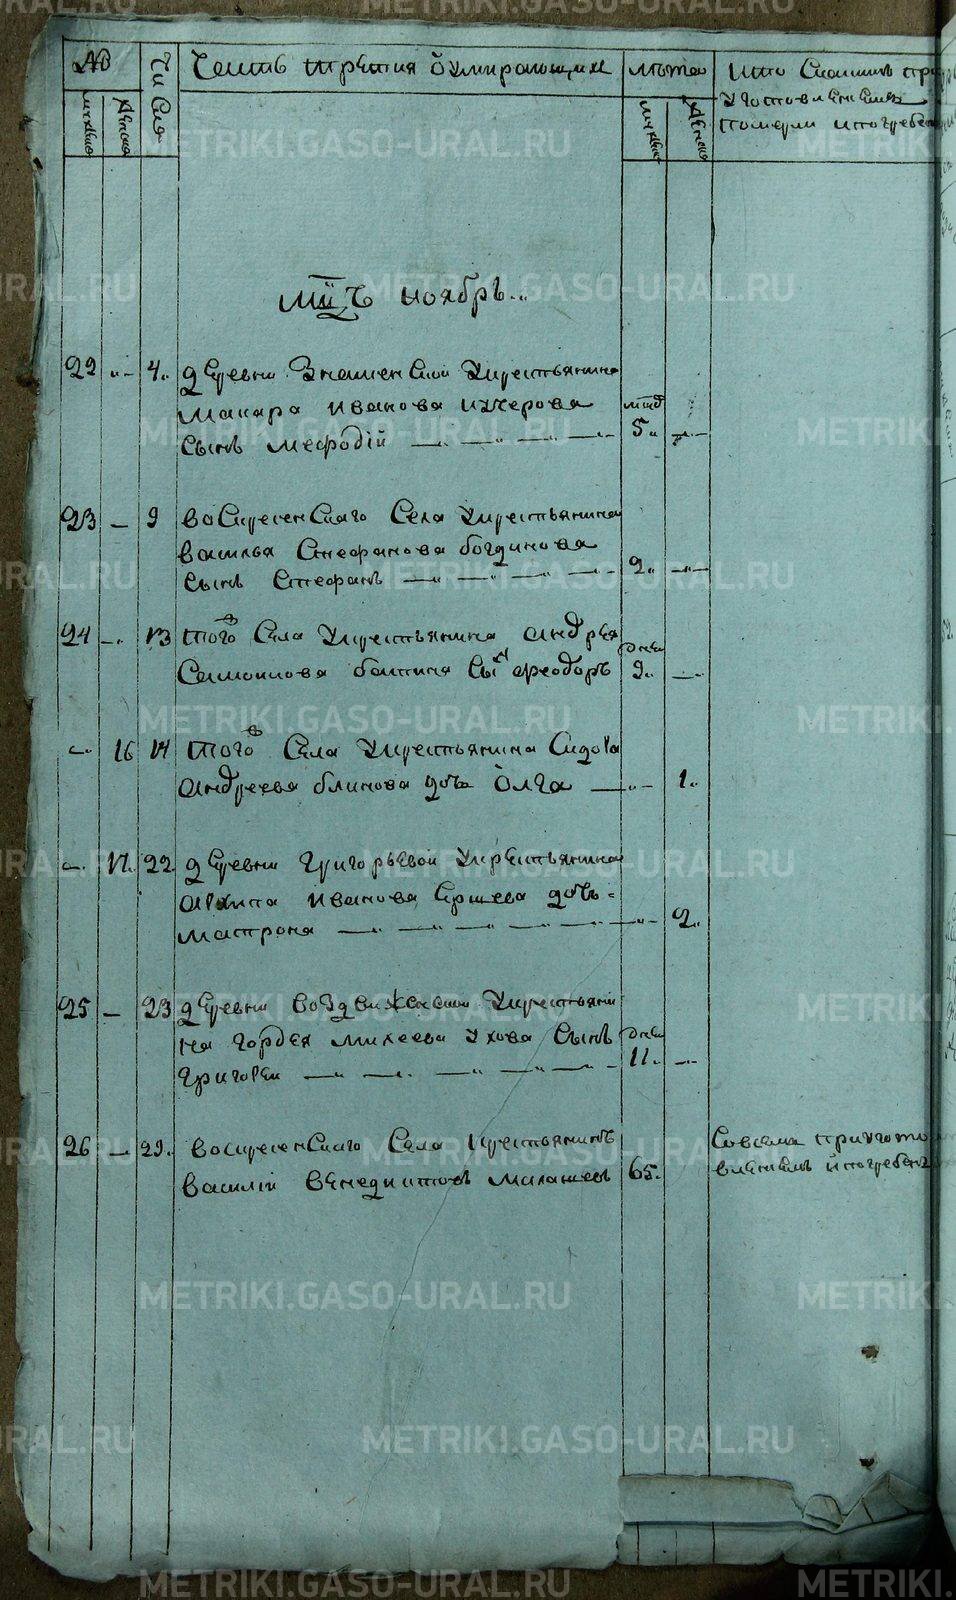 №
Числа
Часть третия о умирающихъ
лѣта
кто с каимъ при
уготовлениемъ
померли и погребе
мужеска
женска
мужеска
женска
мцъ ноябрь..
22 „- 4. деревни Знаменской крестьянина
Макара Иванова Кучерова
сынъ Мефодій — „ — „ — 5. „-
23 — 9 Воскресенскаго Села крестьянина
Василья Стефанова богдинова
сынъ Стефанъ — „ — „ — 2. „-
24 -. 13 тогоже Села крестьянина андрея
дней
Самоилова батина сынъ Феодоръ 9. —
-. 16 17 тогоже Села крестьянина Сидора
андреева блинова дочь Олга — „ - 1.
-. 17. 22. деревни Григорьевой крестьянина
архипа Иванова Ершева дочь -
матрона — „ — „ — „ — „ - 2.
25 — 23 деревни воздвиженской крестьяни
на гордея михеева Ухова сынъ
дней
Григорей — „ —. — „ — „ - 11. „-
26 — 29. Воскресенскаго Села крестьянинъ
василій Венедиктовъ Малашев 65.
Совсема приугото
влениемъ и погребенъ
METRIKI.GASO-URAL.RU